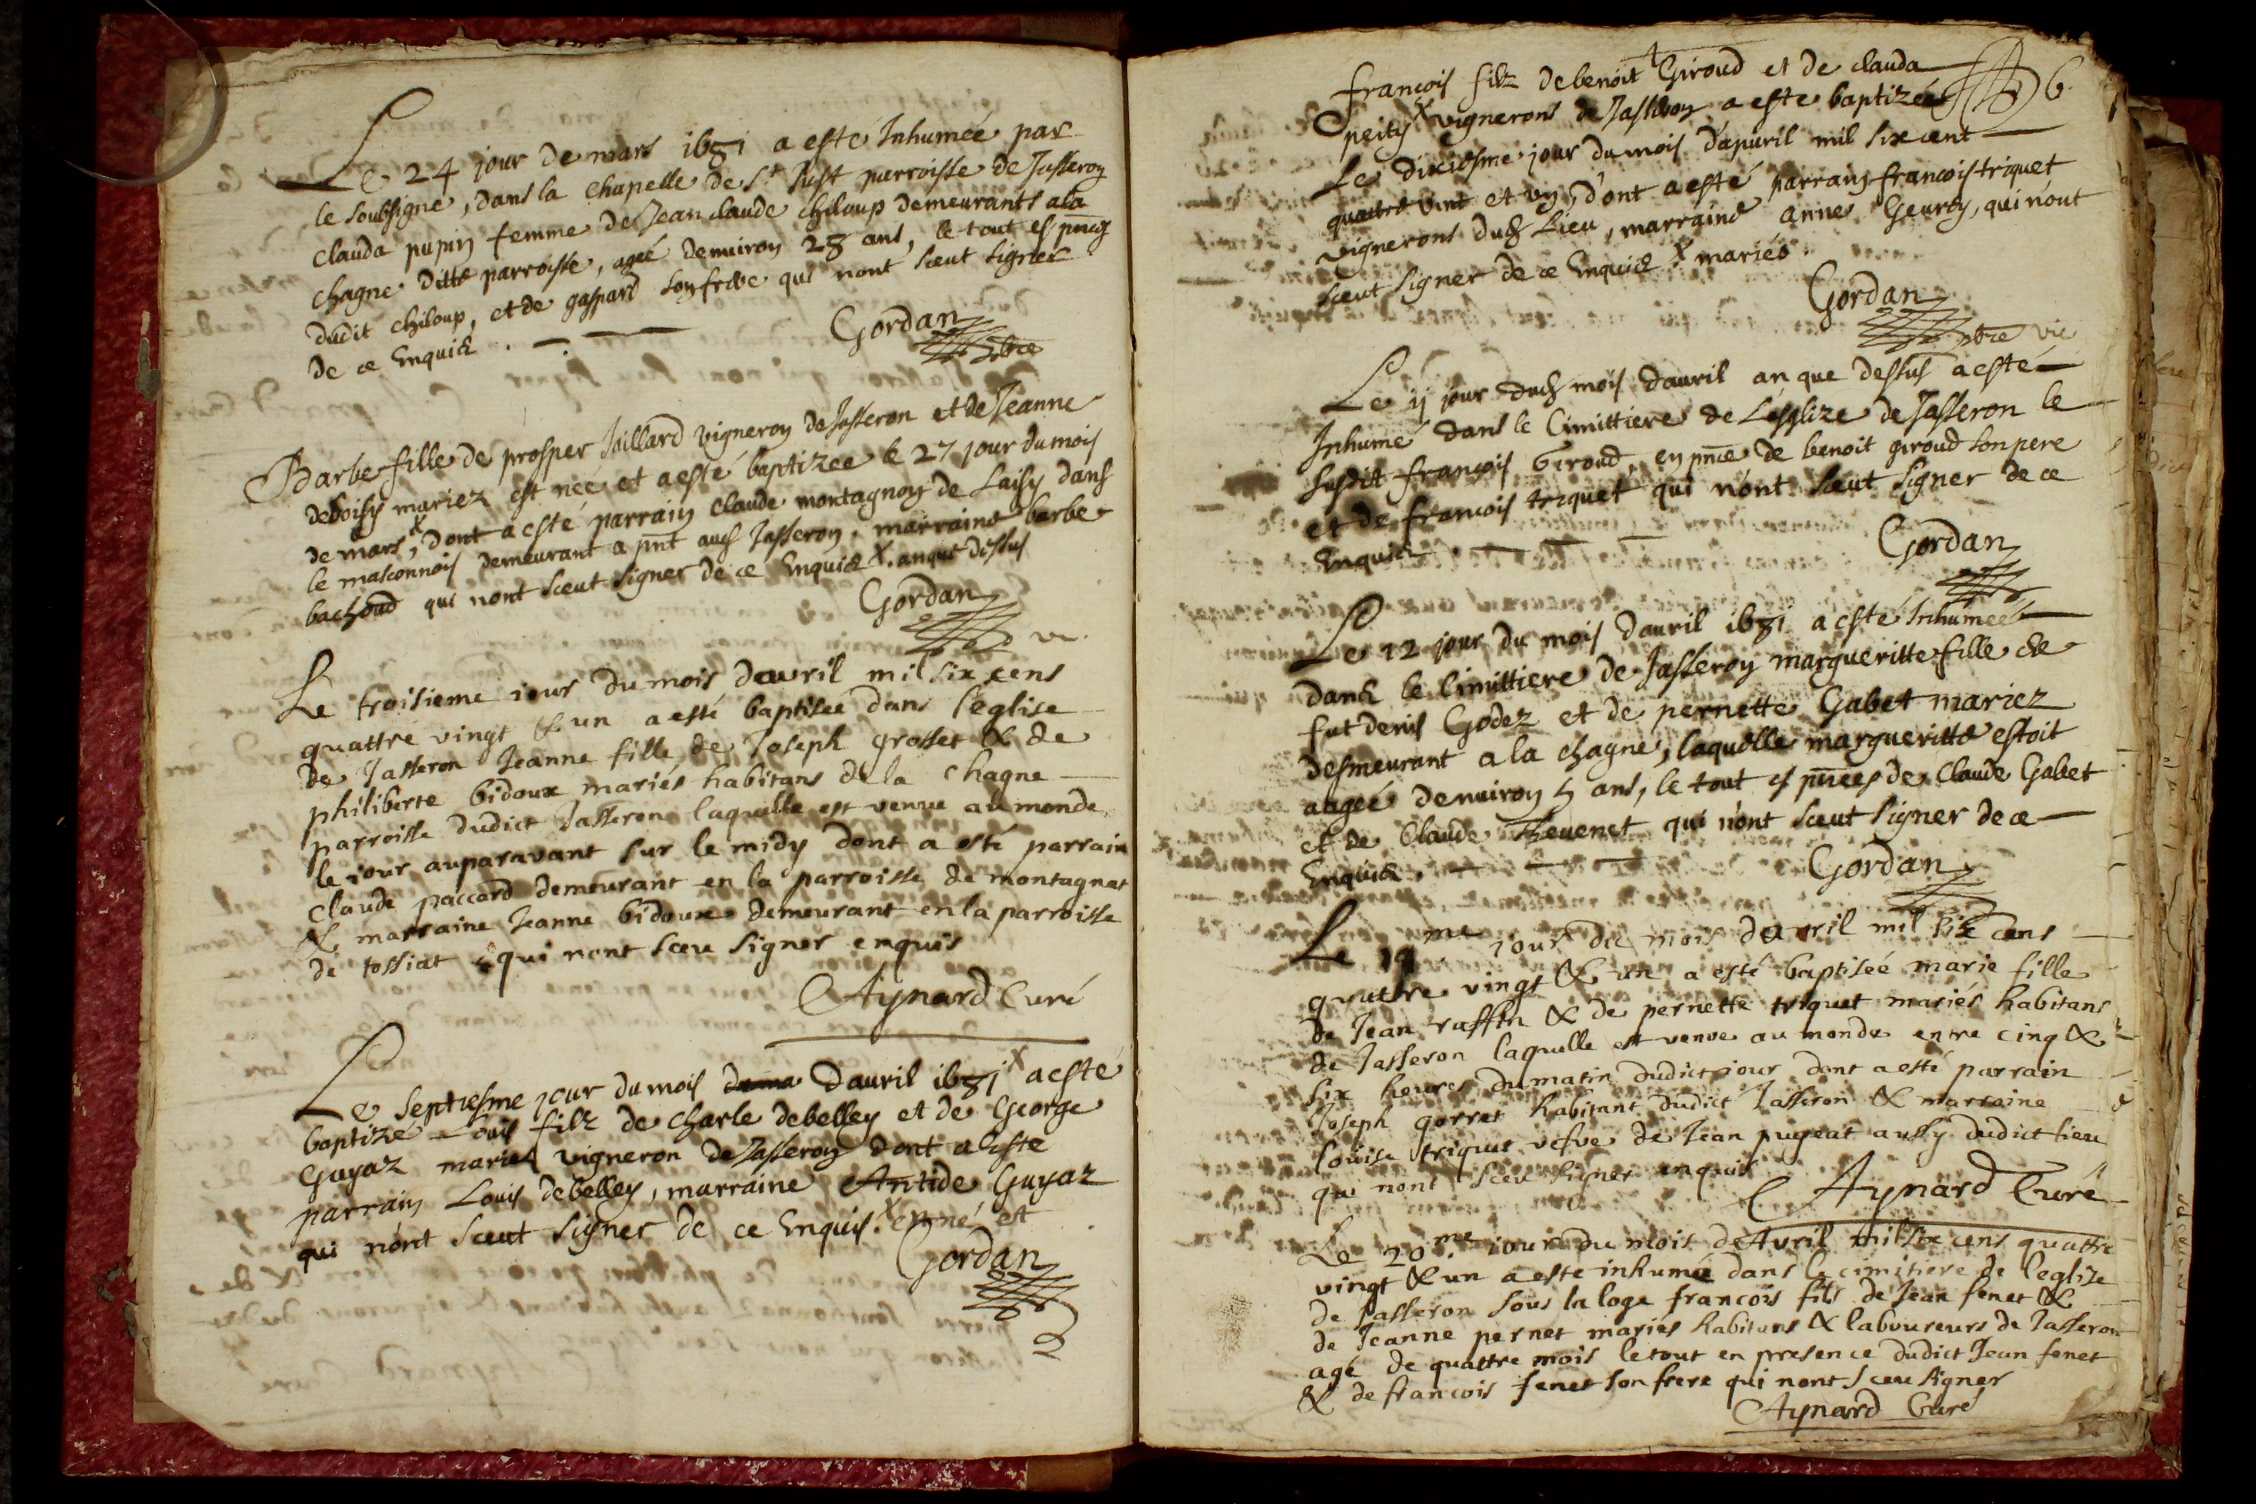 Le 24 jour de mars 1681 a esté Inhumée par
le soubsigné, dans la chapelle de St Just parroisse de Jasseron
clauda pupin femme de Jean claude chiloup demeurants a la
chagne ditte parroisse, ageé denuiron 28 ans, le tout es pñces
dudit chiloup, et de gaspard son frere qui nont sceut signer
de ce Enquis
Gordan
ptre
Barbe fille de prosper Joillard vigneron de Jasseron et de Jeanne
deboisy mariez est neé et a esté baptizee le 27 jour du mois
de mars x, dont a esté parrain claude montagnon de Laisy dans
le masconnois demeurant a pnt aud Jasseron, marraine barbe
bachoud qui nont sceut signer de ce Enquis x. an que dessus
Gordan
vic
Le troisieme iour du mois davril mil six cens
quattre vingt & un a esté baptisee dans l'eglise
de Jasseron Jeanne fille de Joseph grosset & de
philiberte bidoux mariés habitans de la chagne
parroisse dudict Jasseron laquelle est venue au monde
le iour auparavant sur le midy dont a esté parrain
claude paccard demeurant en la parroisse de montagnat
& marraine Jeanne bidoux demeurant en la parroisse
de tossiat qui nont sceu signer enquis
Aynard Curé
Le septiesme jour du mois dauril 1681 x a esté
baptizé Louis filz de charle debelley et de George
Guyaz mariez vigneron de Jasseron dont a este
parrain Louis debelley, marraine Antide Guyaz
qui nont sceut signer de ce Enquis. x est né et
Gordan
2
françois filz de benoit Giroud et de clauda
peity x vignerons de Jasseron a este baptizé
6
Le dixiesme jour du mois dapuril mil six cent
quattre vint et un, dont a esté parrain francois triquet
vignerons dud Lieu, marraine anne Geurdy, qui nout
sceut signer de ce Enquis x mariés
Gordan
ptre vic
Le 11 jour dud mois dauril an que dessus a esté
Inhumé dans le Cimittiere de Lesglize de Jasseron le
susdit françois Giroud, en pñce de benoit giroud son pere
et de francois triquet qui nont sceut signer de ce
Enquis
Gordan
Le 12 jour du mois dauril 1681 a esté Inhumeé
dans le Cimittiere de Jasseron margueritte fille de
fut denis Godez et de pernette Gabet mariez
desmeurant a la chagne, laquelle margueritte estoit
aageé denuiron 5 ans, le tout es pñces de Claude Gabet
et de Claude Theuenet qui nont sceut signer de ce
Enquis.
Gordan
Le 19me jour du mois davril mil six cens
quattre vingt & un a esté baptiseé marie fille
de Jean raffin & de pernette triquet mariés habitans
de Jasseron laquelle est venue au monde entre cinq &
six heures du matin dudict jour dont a esté parrain
Joseph gorret habitant dudict Jasseron & marraine
louise triquet vefve de Jean pugeat aussy dudict lieu
qui nont sceu signer enquis
Aynard Curé
Le 20me iour du mois de Avril mil six cens quattre
vingt & un a este inhumé dans le cimitiere de leglize
de Jasseron sous la loge francois fils de Jean fenet &
de Jeanne pernet mariés habitans & laboureurs de Jasseron
agé de quattre mois le tout en presence dudict Jean fenet
& de francois fenet son frere qui nont sceu signer
Aynard Curé